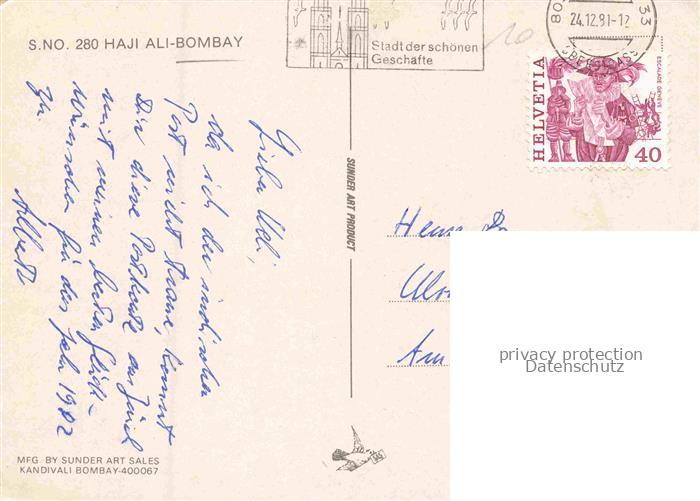 S.NO. 280 HAJI ALI-BOMBAY
Stadt der schönen
Geschäfte
24.12.81-12
HELVETIA
ESCALADE GENÈVE
40
Liebe Ueli,
da ich der indischen
Post nicht traue, kommt
Dir diese Postkarte aus Zürich
mit meinen besten Glück-
wünschen für das Jahr 1982
zu.
Albert
SUNDER ART PRODUCT
Herrn Dr
Ulr
Am
privacy protection
Datenschutz
MFG. BY SUNDER ART SALES
KANDIVALI BOMBAY-400067